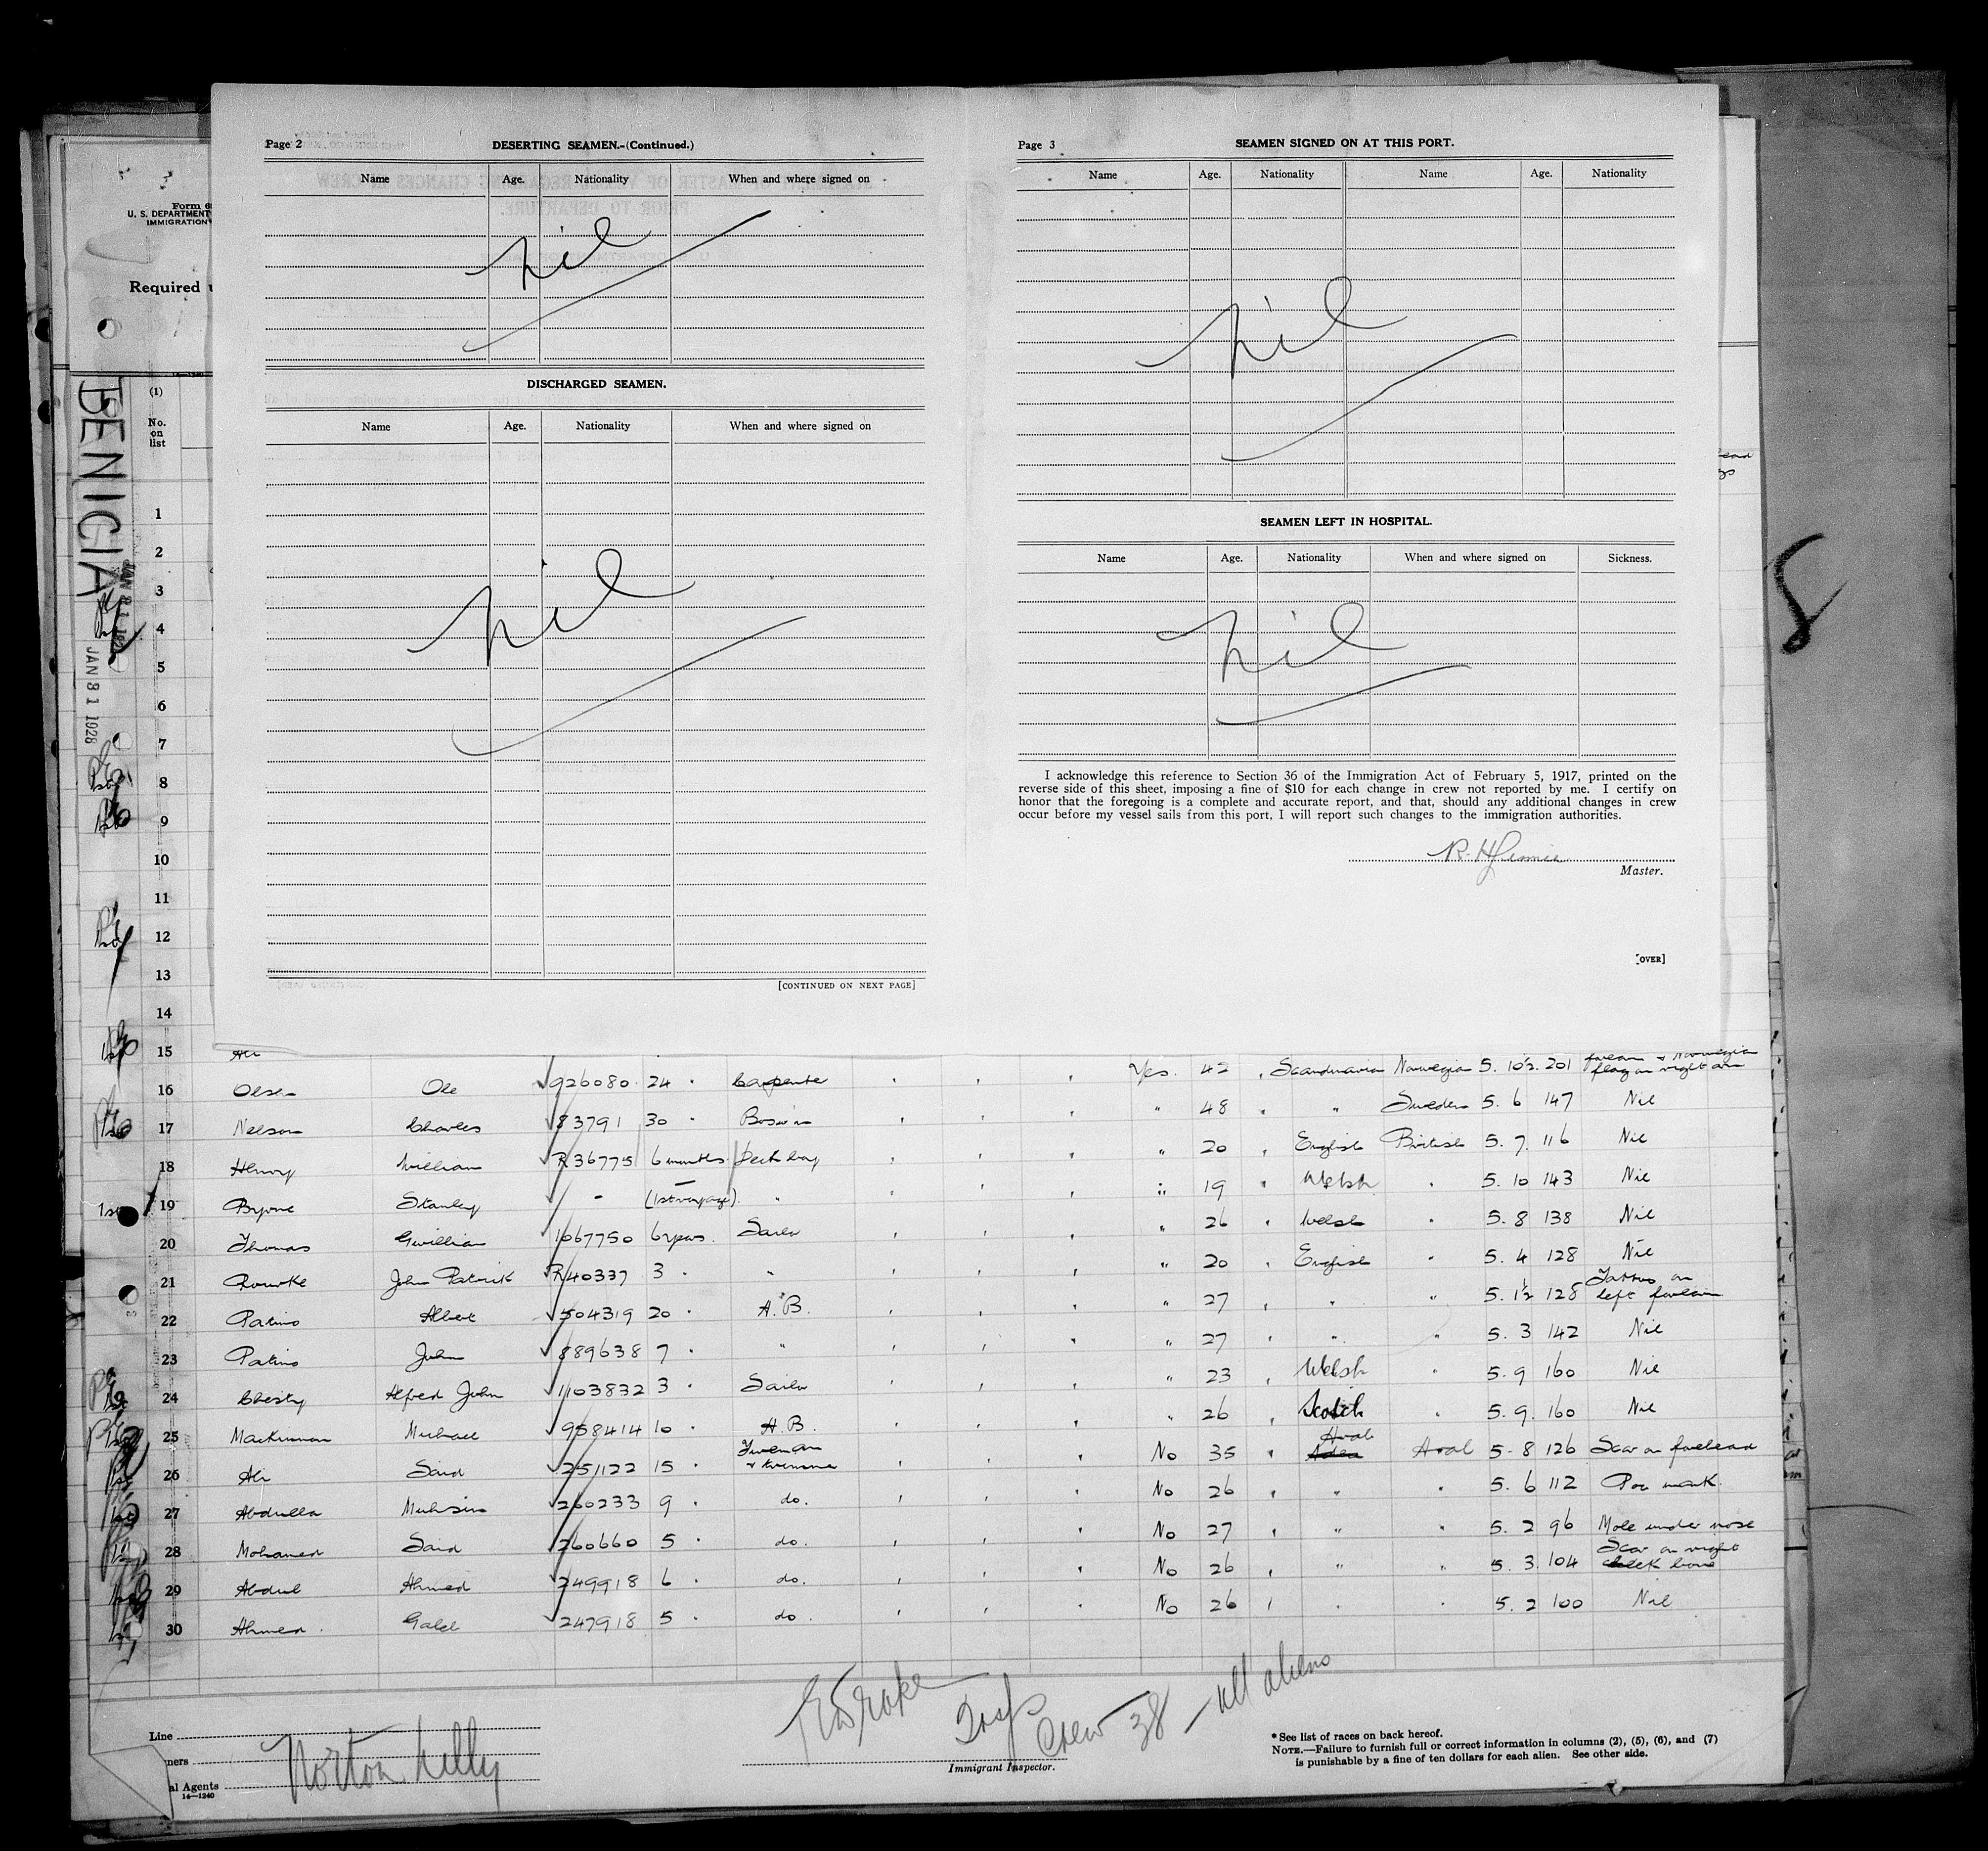 Form 6
U. S. DEPARTMENT
IMMIGRATION
Required
BENICIA
JAN 31 1928
(1)
No.
on
list
1
2
3
4
5
6
7
8
9
10
11
12
13
14
Page 2
DESERTING SEAMEN.-(Continued.)
Name Age. Nationality When and where signed on
Nil
DISCHARGED SEAMEN.
Name Age. Nationality When and where signed on
Nil
[CONTINUED ON NEXT PAGE]
Page 3
SEAMEN SIGNED ON AT THIS PORT.
Name Age. Nationality Name Age. Nationality
Nil
SEAMEN LEFT IN HOSPITAL.
Name Age. Nationality When and where signed on Sickness.
Nil
I acknowledge this reference to Section 36 of the Immigration Act of February 5, 1917, printed on the
reverse side of this sheet, imposing a fine of $10 for each change in crew not reported by me. I certify on
honor that the foregoing is a complete and accurate report, and that, should any additional changes in crew
occur before my vessel sails from this port, I will report such changes to the immigration authorities.
Master.
[OVER]
8
15
16 Olsen Ole 926080 24 Carpenter Yes 42 Scandinavian Norwegian 5. 10½. 201 forearm & Norwegian flag on right arm
17 Nelson Charles 83791 30 Bosun " 48 " Sweden 5. 6 147 Nil
18 Henry William R36775 6 months Deck boy " 20 English British 5. 7. 116 Nil
19 Byrne Stanley - (1st voyage) " " 19 Welsh " 5. 10 143 Nil
20 Thomas Gwilliam 1067750 6 years Sailor " 26 Welsh " 5. 8 138 Nil
21 Rourke John Patrick R40337 3 " " " 20 English " 5. 4 128 Nil
22 Patino Albert 504319 20 " A.B. " 27 " " 5. 1½ 128 Tattoo on left forearm
23 Patino John 889638 7 " " " 27 " " 5. 3 142 Nil
24 Chesty Alfred John 1103832 3 " Sailor " 23 Welsh " 5. 9 160 Nil
25 MacKinnon Michael 958414 10 " A.B. " 26 Scotch " 5. 9. 160 Nil
26 Ali Said 251122 15 " Fireman & trimmer No 35 Arab Arab 5. 8 126 Scar on forehead
27 Abdulla Muhsin 260233 9 " do. No 26 " " 5. 6 112 Pox mark.
28 Mohamed Said 260660 5 " do. No 27 " " 5. 2 96 Mole under nose
29 Abdul Ahmed 249918 6 " do. No 26 " " 5. 3. 104 Scar on right cheek bone
30 Ahmed Galel 247918 5 " do. No 26 " " 5. 2 100 Nil
Crew 38 - all aliens
Line
Norton Lilly
ners
al Agents
14-1240
Immigrant Inspector.
* See list of races on back hereof.
NOTE.—Failure to furnish full or correct information in columns (2), (5), (6), and (7)
is punishable by a fine of ten dollars for each alien. See other side.